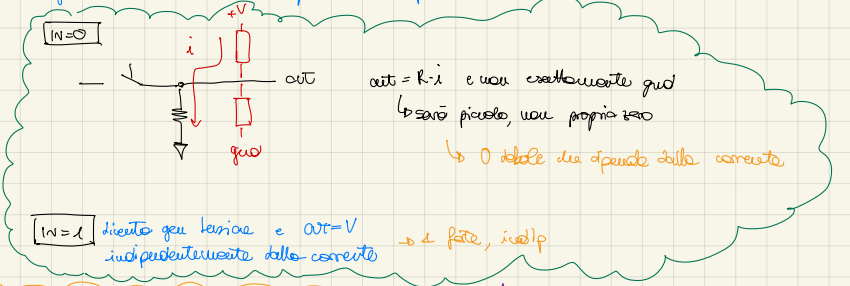 +V
IN=0
i
out
out = R·i e non esattamente gnd
↳ sarà piccolo, non proprio zero
gnd
↳ 0 debole che dipende dalla corrente
IN=1
divento gen tensione e out=V
→ 1 forte, indip
indipendentemente dalla corrente